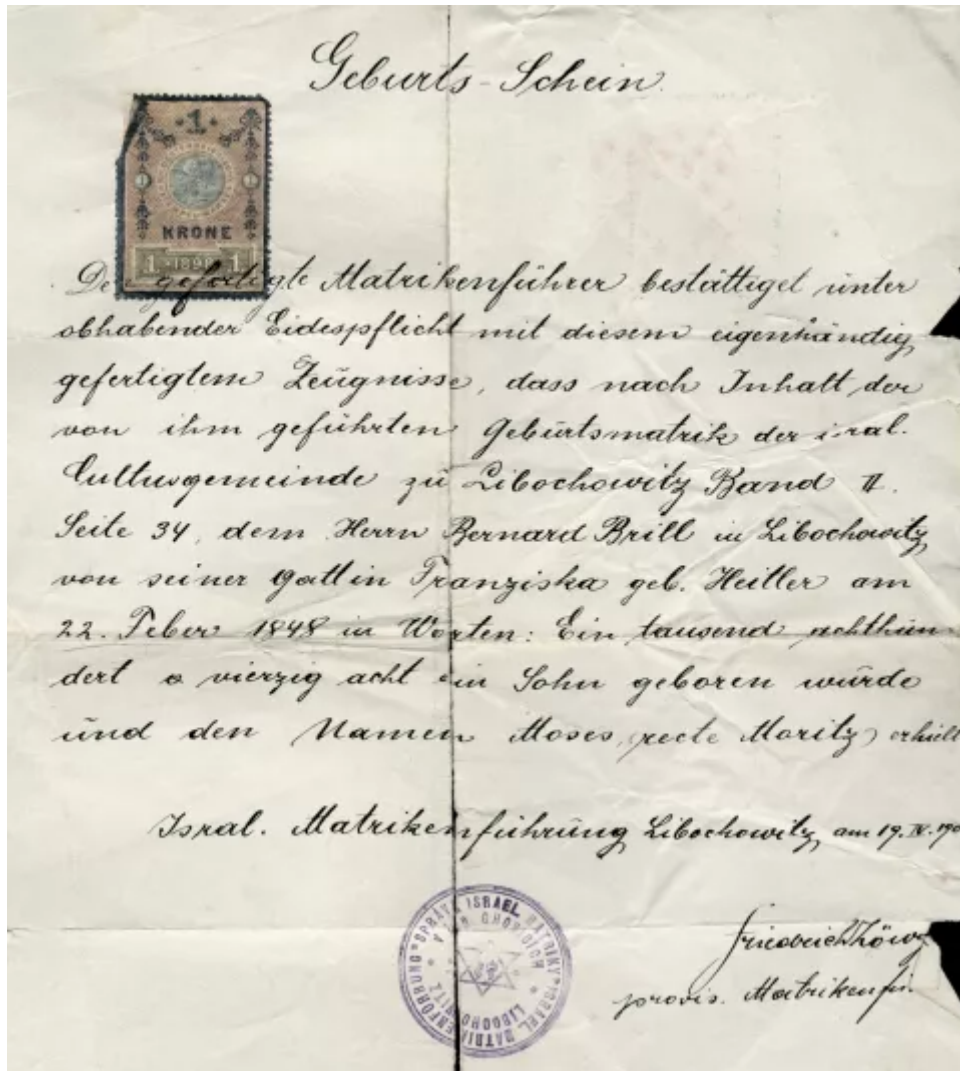 Geburts-Schein.
1
KRONE
1 1898 1
Der gefertigte Matrikenführer bestättiget unter
obhabender Eidespflicht mit diesem eigenhändig
gefertigtem Zeügnisse, dass nach Inhalt der
von ihm geführten Gebürtsmatrik der isral.
Cultusgemeinde zu Libochowitz Band II.
Seite 34, dem Herrn Bernard Brill in Libochowitz
von seiner Gattin Franziska geb. Heitler am
22. Feber 1848 in Worten: Ein tausend achthün-
dert o vierzig acht ein Sohn geboren würde
ünd den Namen Moses, (recte Moritz) erhielt
Isral. Matrikenführüng Libochowitz, am 19. IV. 190
SPRÁVA ISRAEL. MATRIKY
ISRAEL MATRIKENFÜHRUNG
LIBOCHOWITZ
Friedrich
provis. Matrikenfü.